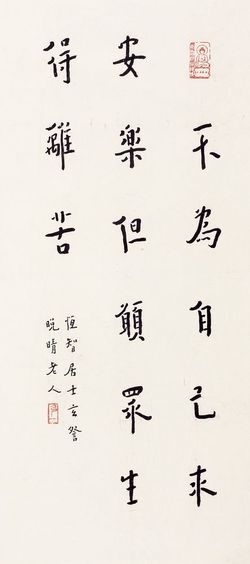 不為自己求
安樂但願眾生
得離苦
恒智居士玄詧
晚晴老人